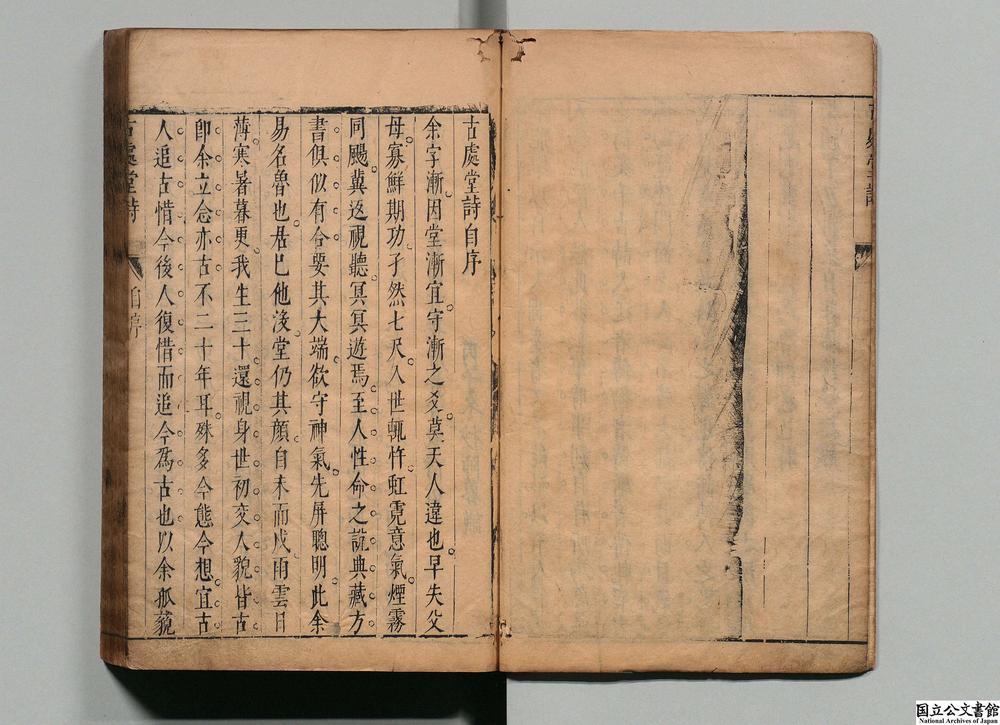 古處堂詩自序
余字漸因堂漸宜守漸之爻莫天人違也早失父
母寡鮮期功孑然七尺入世輒忤虹霓意氣煙霧
同颺冀返視聽冥冥遊焉至人性命之說典藏方
書俱似有合要其大端欲守神氣先屏聰明此余
易名魯也居已他後堂仍其顏自未而戍雨雲日
薄寒暑暮更我生三十還視身世初交人貌皆古
卽余立念亦古不二十年耳殊多今態今想宜古
人追古惜今後人復惜而追今為古也以余孤藐
古處堂詩
自序
国立公文書館
National Archives of Japan